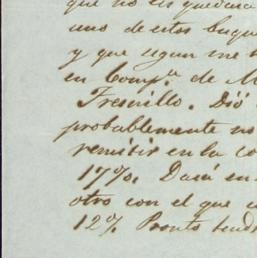 que no es queda
uno de estos buqu
y que segun me
en Comp.ª de M
Fresnillo. Dió
probablemente no
remitir en la co
17%. Dará en
otro con el que
12% Pronto tendr